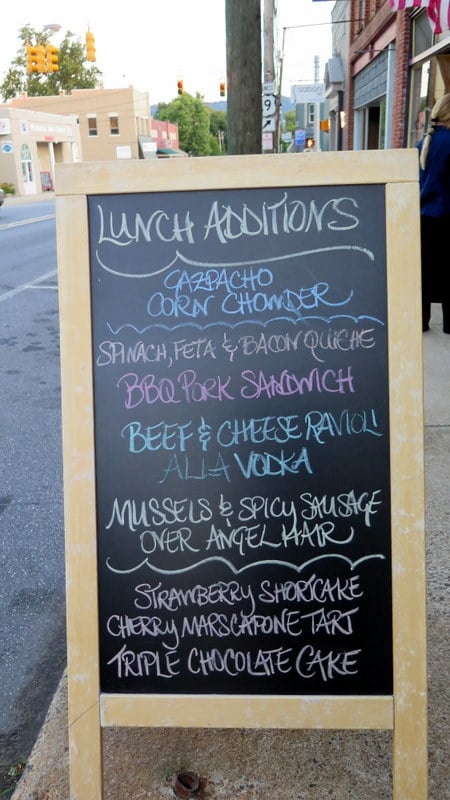 9
LUNCH ADDITIONS
GAZPACHO
CORN CHOWDER
SPINACH, FETA & BACON QUICHE
BBQ PORK SANDWICH
BEEF & CHEESE RAVIOLI
ALLA VODKA
MUSSELS & SPICY SAUSAGE
OVER ANGEL HAIR
STRAWBERRY SHORTCAKE
CHERRY MARSCAPONE TART
TRIPLE CHOCOLATE CAKE